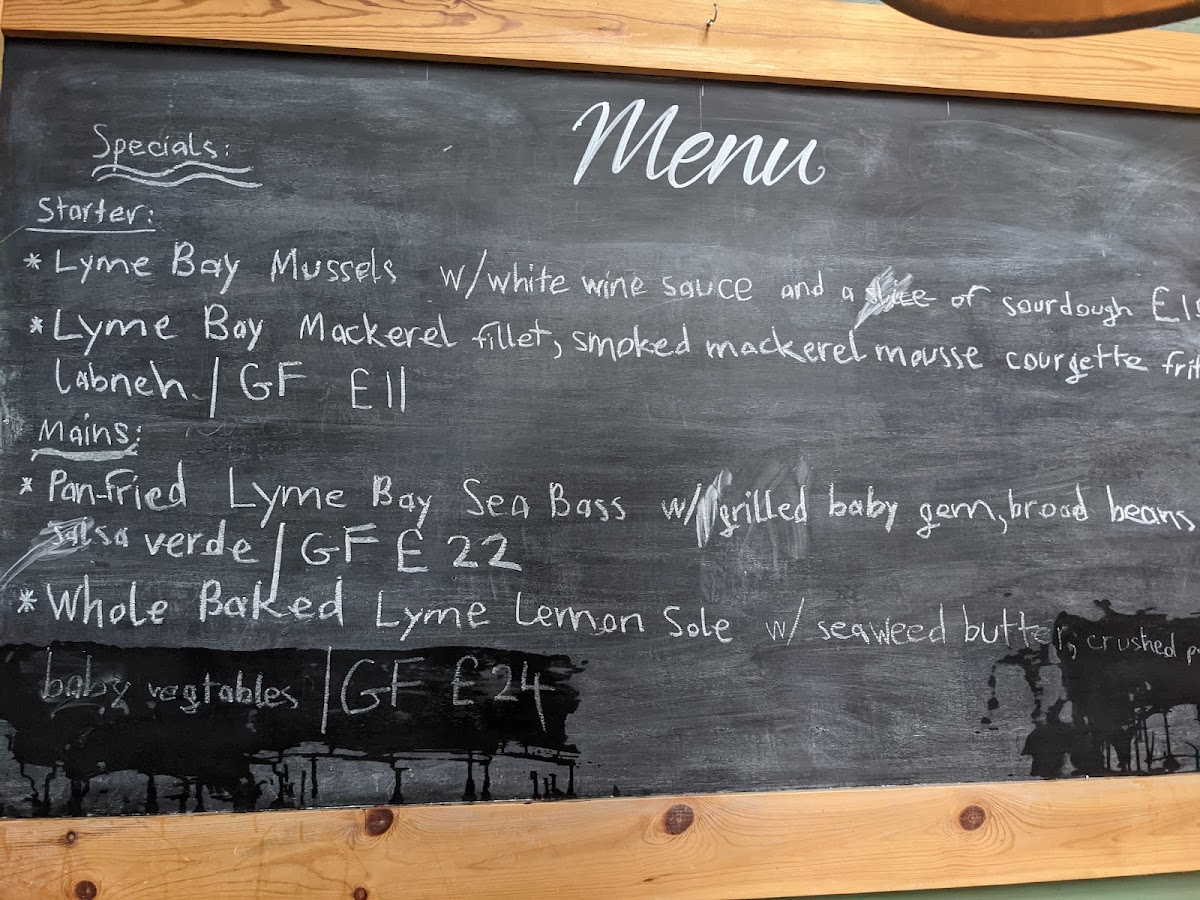 Menu
Specials:
Starter:
* Lyme Bay Mussels w/ white wine sauce and a slice of sourdough
* Lyme Bay Mackerel fillet, smoked mackerel mousse courgette
labneh | GF £11
Mains:
* Pan-fried Lyme Bay Sea Bass w/ grilled baby gem, broad beans
salsa verde | GF £22
* Whole Baked Lyme Lemon Sole w/ seaweed butter, crushed
baby vegtables | GF £24